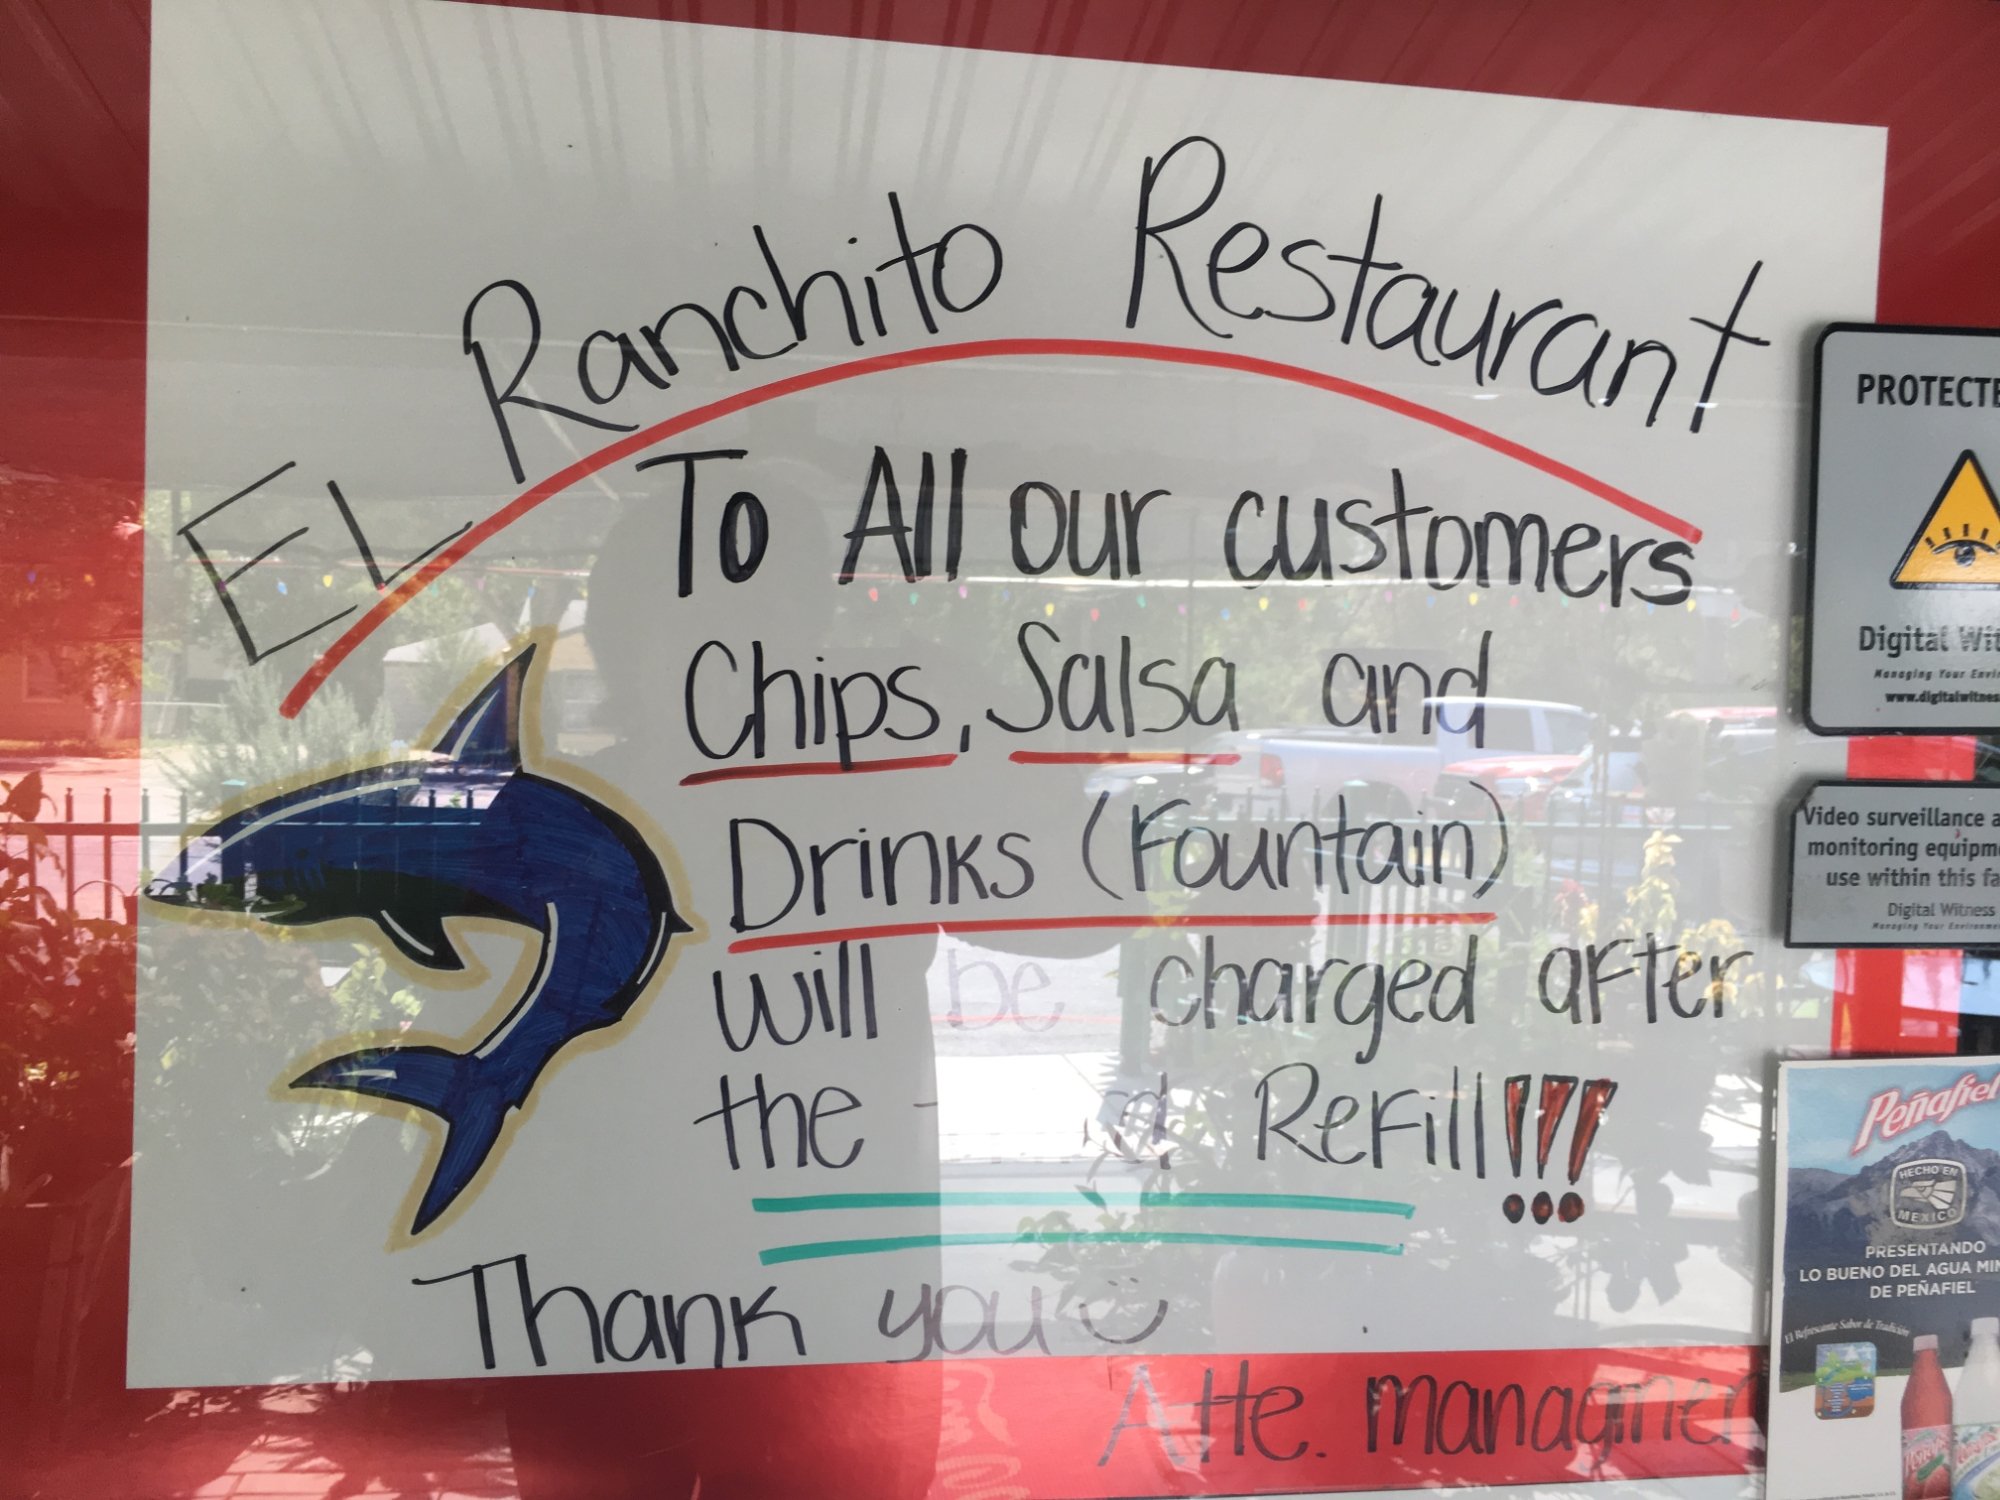 EL Ranchito Restaurant
To All our customers
Chips, Salsa and
Drinks (Fountain)
will be charged after
the third Refill!!!
Thank you
Atte. managmen
PROTECTE
Digital Wit
Managing Your Envir
www.digitalwitnes
Video surveillance a
monitoring equipm
use within this fa
Digital Witness
Managing Your Environmen
Peñafiel
HECHO EN
MEXICO
PRESENTANDO
LO BUENO DEL AGUA MIN
DE PEÑAFIEL
El Refrescante Sabor de Tradición